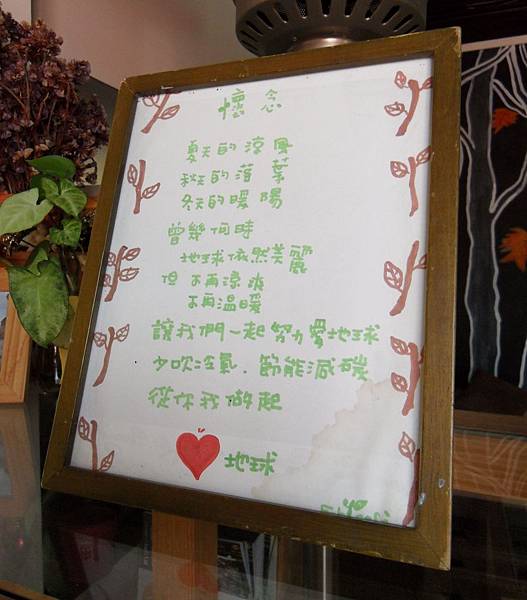 懷念
夏天的涼風
秋天的落葉
冬天的暖陽
曾幾何時
地球依然美麗
但 不再涼爽
不再溫暖
讓我們一起努力愛地球
少吹冷氣．節能減碳
從你我做起
地球